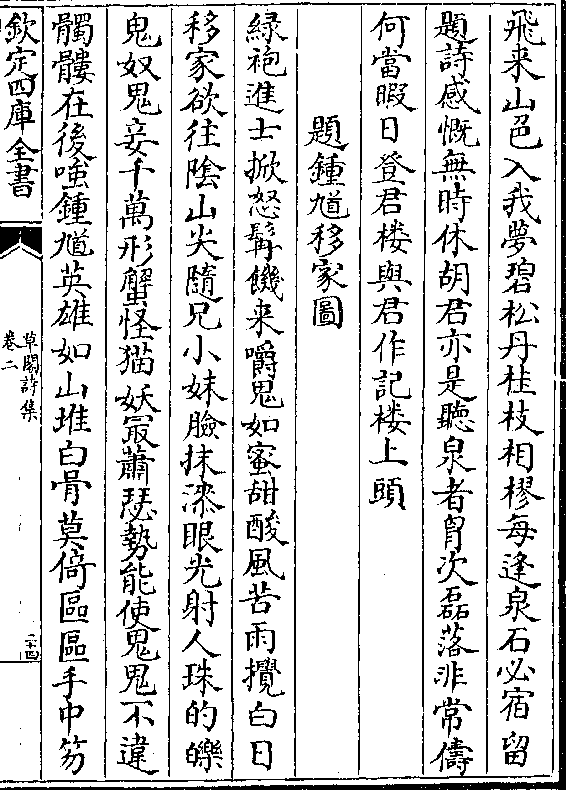 飛来山邑入我夢碧松丹桂枝相樛每逢泉石必宿留
題詩感慨無時休胡君亦是聽泉者胷次磊落非常儔
何當暇日登君楼與君作記楼上頭
題鍾馗移家圖
緑袍進士掀怒髯饑来嚼鬼如蜜甜酸風苦雨攪白日
移家欲往陰山尖隨兄小妹臉抹漆眼光射人珠的皪
鬼奴鬼妾千萬形蟹怪猫妖㝡蕭瑟勢能使鬼鬼不違
髑髏在後嗤鍾馗英雄如山堆白骨莫倚區區手中笏
欽定四庫全書
草閣詩集
卷二
二十四